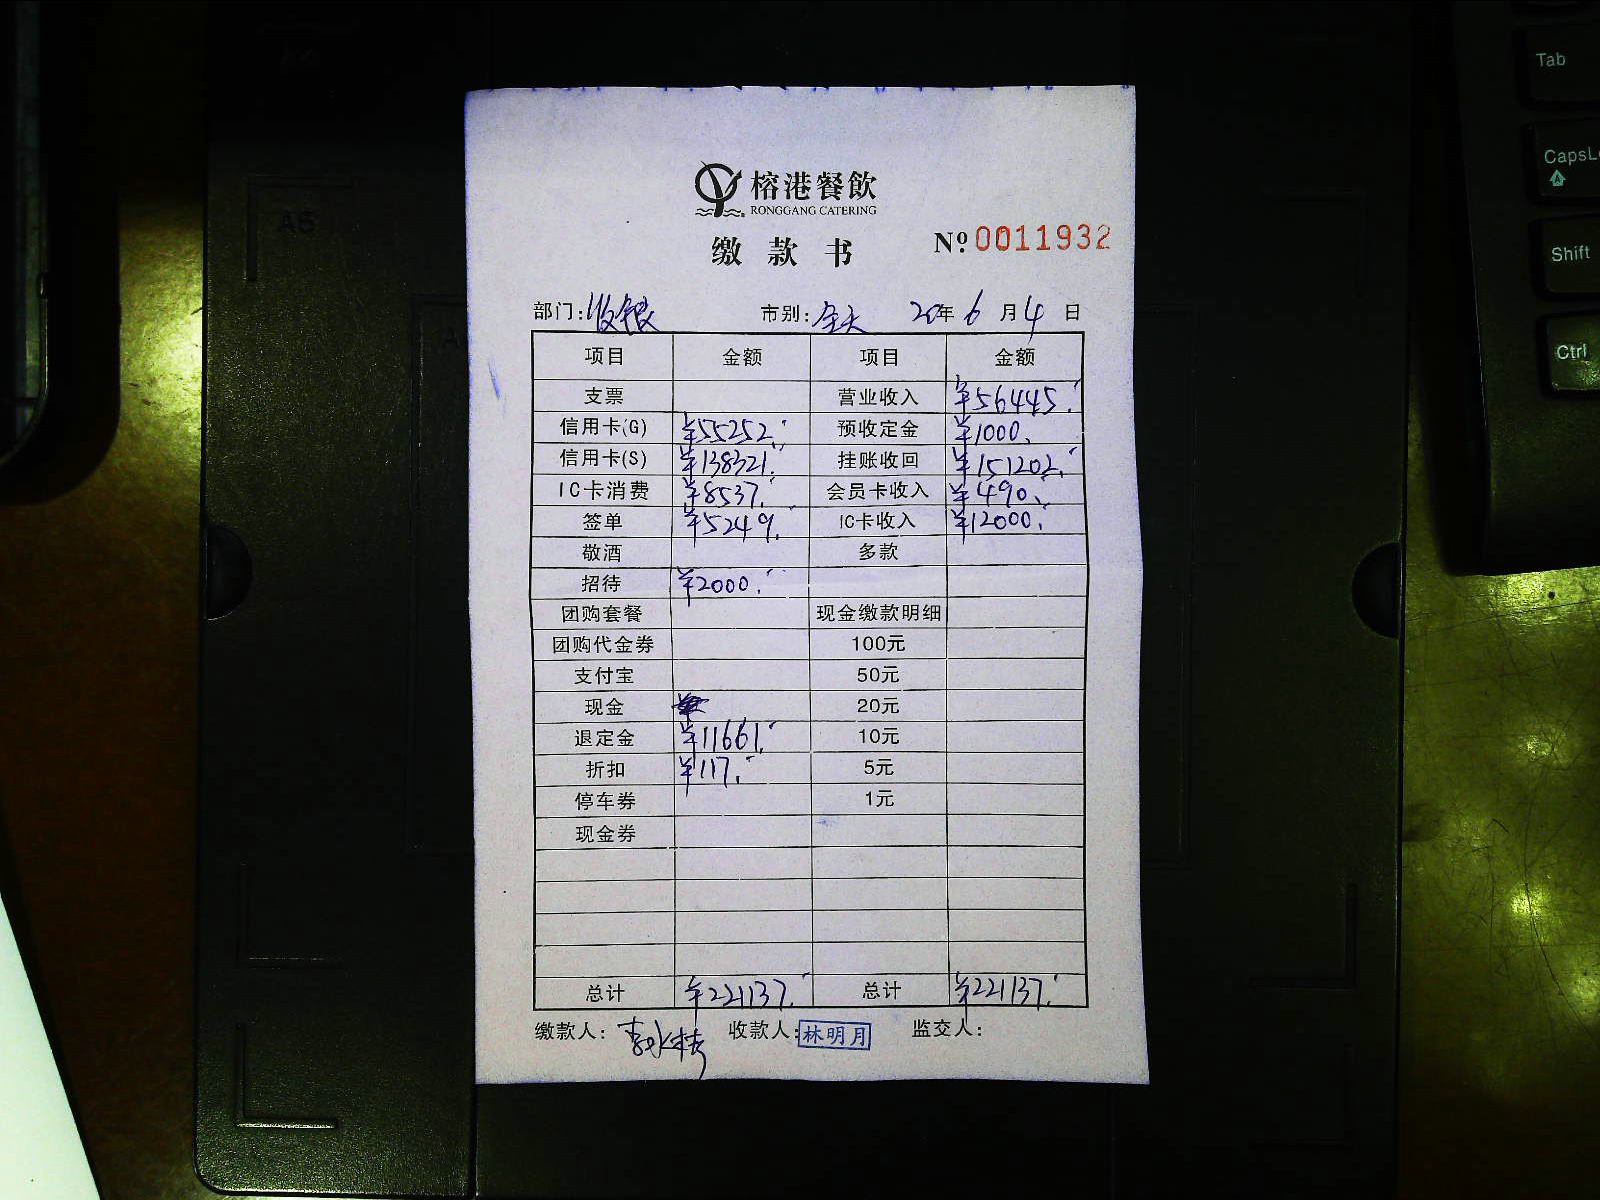 榕港餐飲
RONGGANG CATERING
缴款书 Nº 0011932
部门:收银 市别:全天 20年6月4日
项目 金额 项目 金额
支票 营业收入 ¥56445.
信用卡(G) ¥55252. 预收定金 ¥1000.
信用卡(S) ¥138321. 挂账收回 ¥151202.
IC卡消费 ¥8537. 会员卡收入 ¥490.
签单 ¥5249. IC卡收入 ¥12000.
敬酒 多款
招待 ¥2000.
团购套餐 现金缴款明细
团购代金券 100元
支付宝 50元
现金 20元
退定金 ¥11661. 10元
折扣 ¥117. 5元
停车券 1元
现金券
总计 ¥221137. 总计 ¥221137.
缴款人: 收款人:林明月 监交人:
Tab
CapsLo
Shift
Ctrl
A5